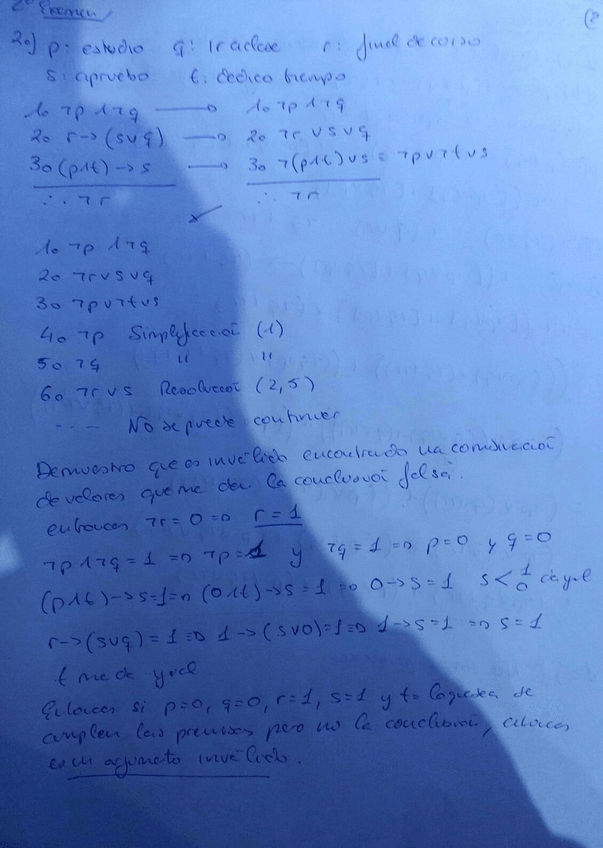 2º Examen
2º) p: estudio q: Ir a clase r: final de curso
s: apruebo t: dedico tiempo
1º ¬p∧¬q → 1º ¬p∧¬q
2º r→(s∨q) → 2º ¬r∨s∨q
3º (p∧t)→s → 3º ¬(p∧t)∨s ≡ ¬p∨¬t∨s
∴ ¬r ∴ ¬r
1º ¬p∧¬q
2º ¬r∨s∨q
3º ¬p∨¬t∨s
4º ¬p Simplificación (1)
5º ¬q " "
6º ¬r∨s Resolución (2,5)
---- No se puede continuar
Demuestro que es inválido encontrando una combinación
de valores que me den la conclusión falsa.
entonces ¬r=0 ⇒ r=1
¬p∧¬q=1 ⇒ ¬p=1 y ¬q=1 ⇒ p=0 y q=0
(p∧t)→s=1 ⇒ (0∧t)→s=1 ⇒ 0→s=1 s< 1 0 da igual
r→(s∨q)=1 ⇒ 1→(s∨0)=1 ⇒ 1→s=1 ⇒ s=1
t me da igual
Entonces si p=0, q=0, r=1, s=1 y t= lo que sea se
cumplen las premisas pero no la conclusión, entonces
es un argumento inválido.